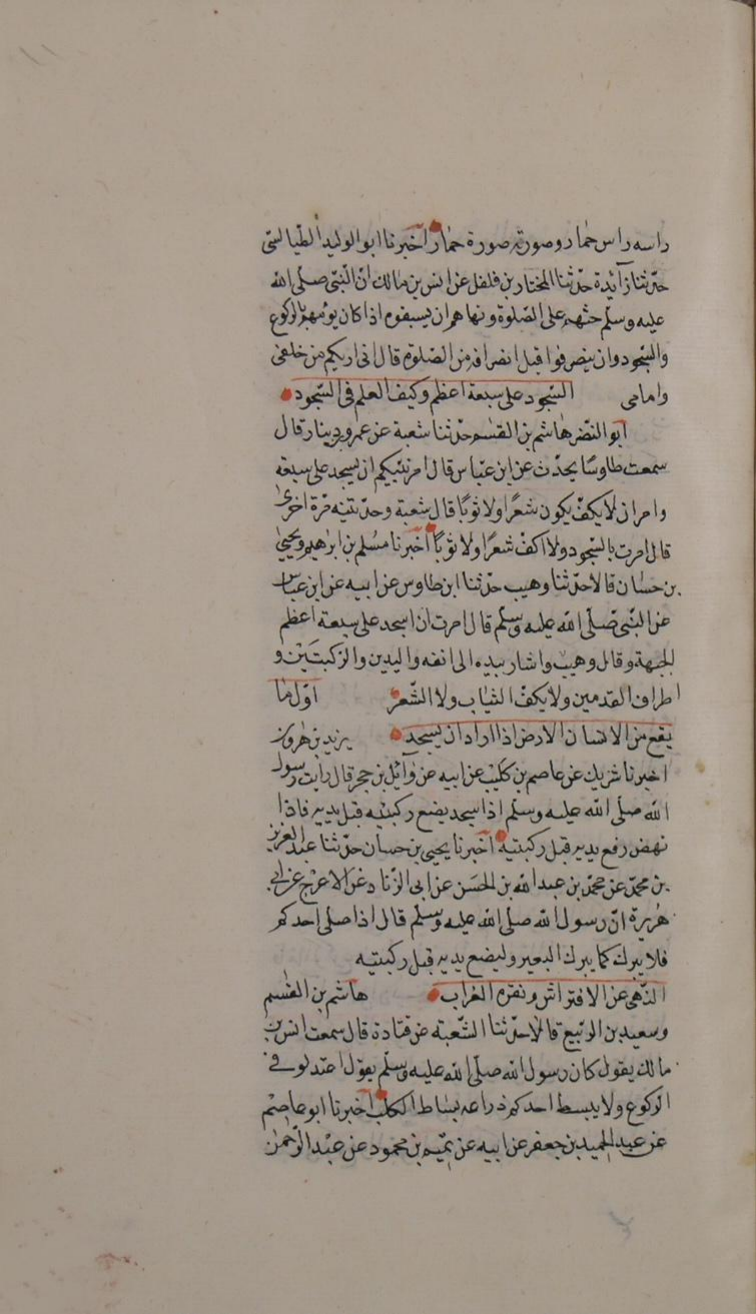 راسه راس حمار وصورته صورة حمار اخبرنا ابو الوليد الطيالسى
حدّثنا زآئدة حدّثنا المختار بن فلفل عن انس بن مالك انّ النّبى صلّى الله
عليه وسلّم حثهم على الصّلوة ونهاهم ان يسبقوه اذا كان يؤمهم بالركوع
والسّجود وان ينصرفوا قبل انصرافه من الصّلوة قال انى اريكم من خلفى
وامامى السّجود على سبعة اعظم وكيف العلم فى السّجود
ابو النّضر هاشم بن القسم حدّثنا شعبة عن عمرو بن دينار قال
سمعت طاوسًا يحدّث عن ابن عبّاس قال امر نبيكم ان يسجد على سبعة
وامر ان لا يكفّ يكون شعرًا ولا ثوبًا قال شعبة وحدّثنيه مرّة اخرى
قال امرت بالسّجود ولا اكفّ شعرًا ولا ثوبًا اخبرنا مسلم بن ابرهيم ويحيى
بن حسان قالا حدّثنا وهيب حدّثنا ابن طاوس عن ابيه عن ابن عباس
عن النّبى صلّى الله عليه وسلّم قال امرت ان اسجد على سبعة اعظم
الجبهة وقال وهيب واشار بيده الى انفه واليدين والركبتين و
اطراف القدمين ولا يكفّ الثياب ولا الشّعر اوّل ما
يقع من الانسان الارض اذا اراد ان يسجد يزيد بن هرون
اخبرنا شريك عن عاصم بن كليب عن ابيه عن وآئل بن حجر قال رايت رسول
الله صلى الله عليه وسلم اذا سجد يضع ركبتيه قبل يديه فاذا
نهض رفع يديه قبل ركبتيه اخبرنا يحيى بن حسان حدّثنا عبد العزيز
بن محمّد عن محمّد بن عبد الله بن الحسن عن ابى الزّناد عن الاعرج عن ابى
هريرة انّ رسول الله صلى الله عليه وسلّم قال اذا صلى احدكم
فلا يبرك كما يبرك البعير وليضع يديه قبل ركبتيه
النّهى عن الافتراش ونقرة الغراب هاشم بن القسم
وسعيد بن الربيع قالا حدّثنا الشّعبة عن قتادة قال سمعت انس بن
مالك يقول كان رسول الله صلّى الله عليه وسلّم يقول اعتدلوا فى
الركوع ولا يبسط احدكم ذراعه بساط الكلب اخبرنا ابو عاصم
عن عبد الحميد بن جعفر عن ابيه عن تميم بن محمود عن عبد الرّحمن